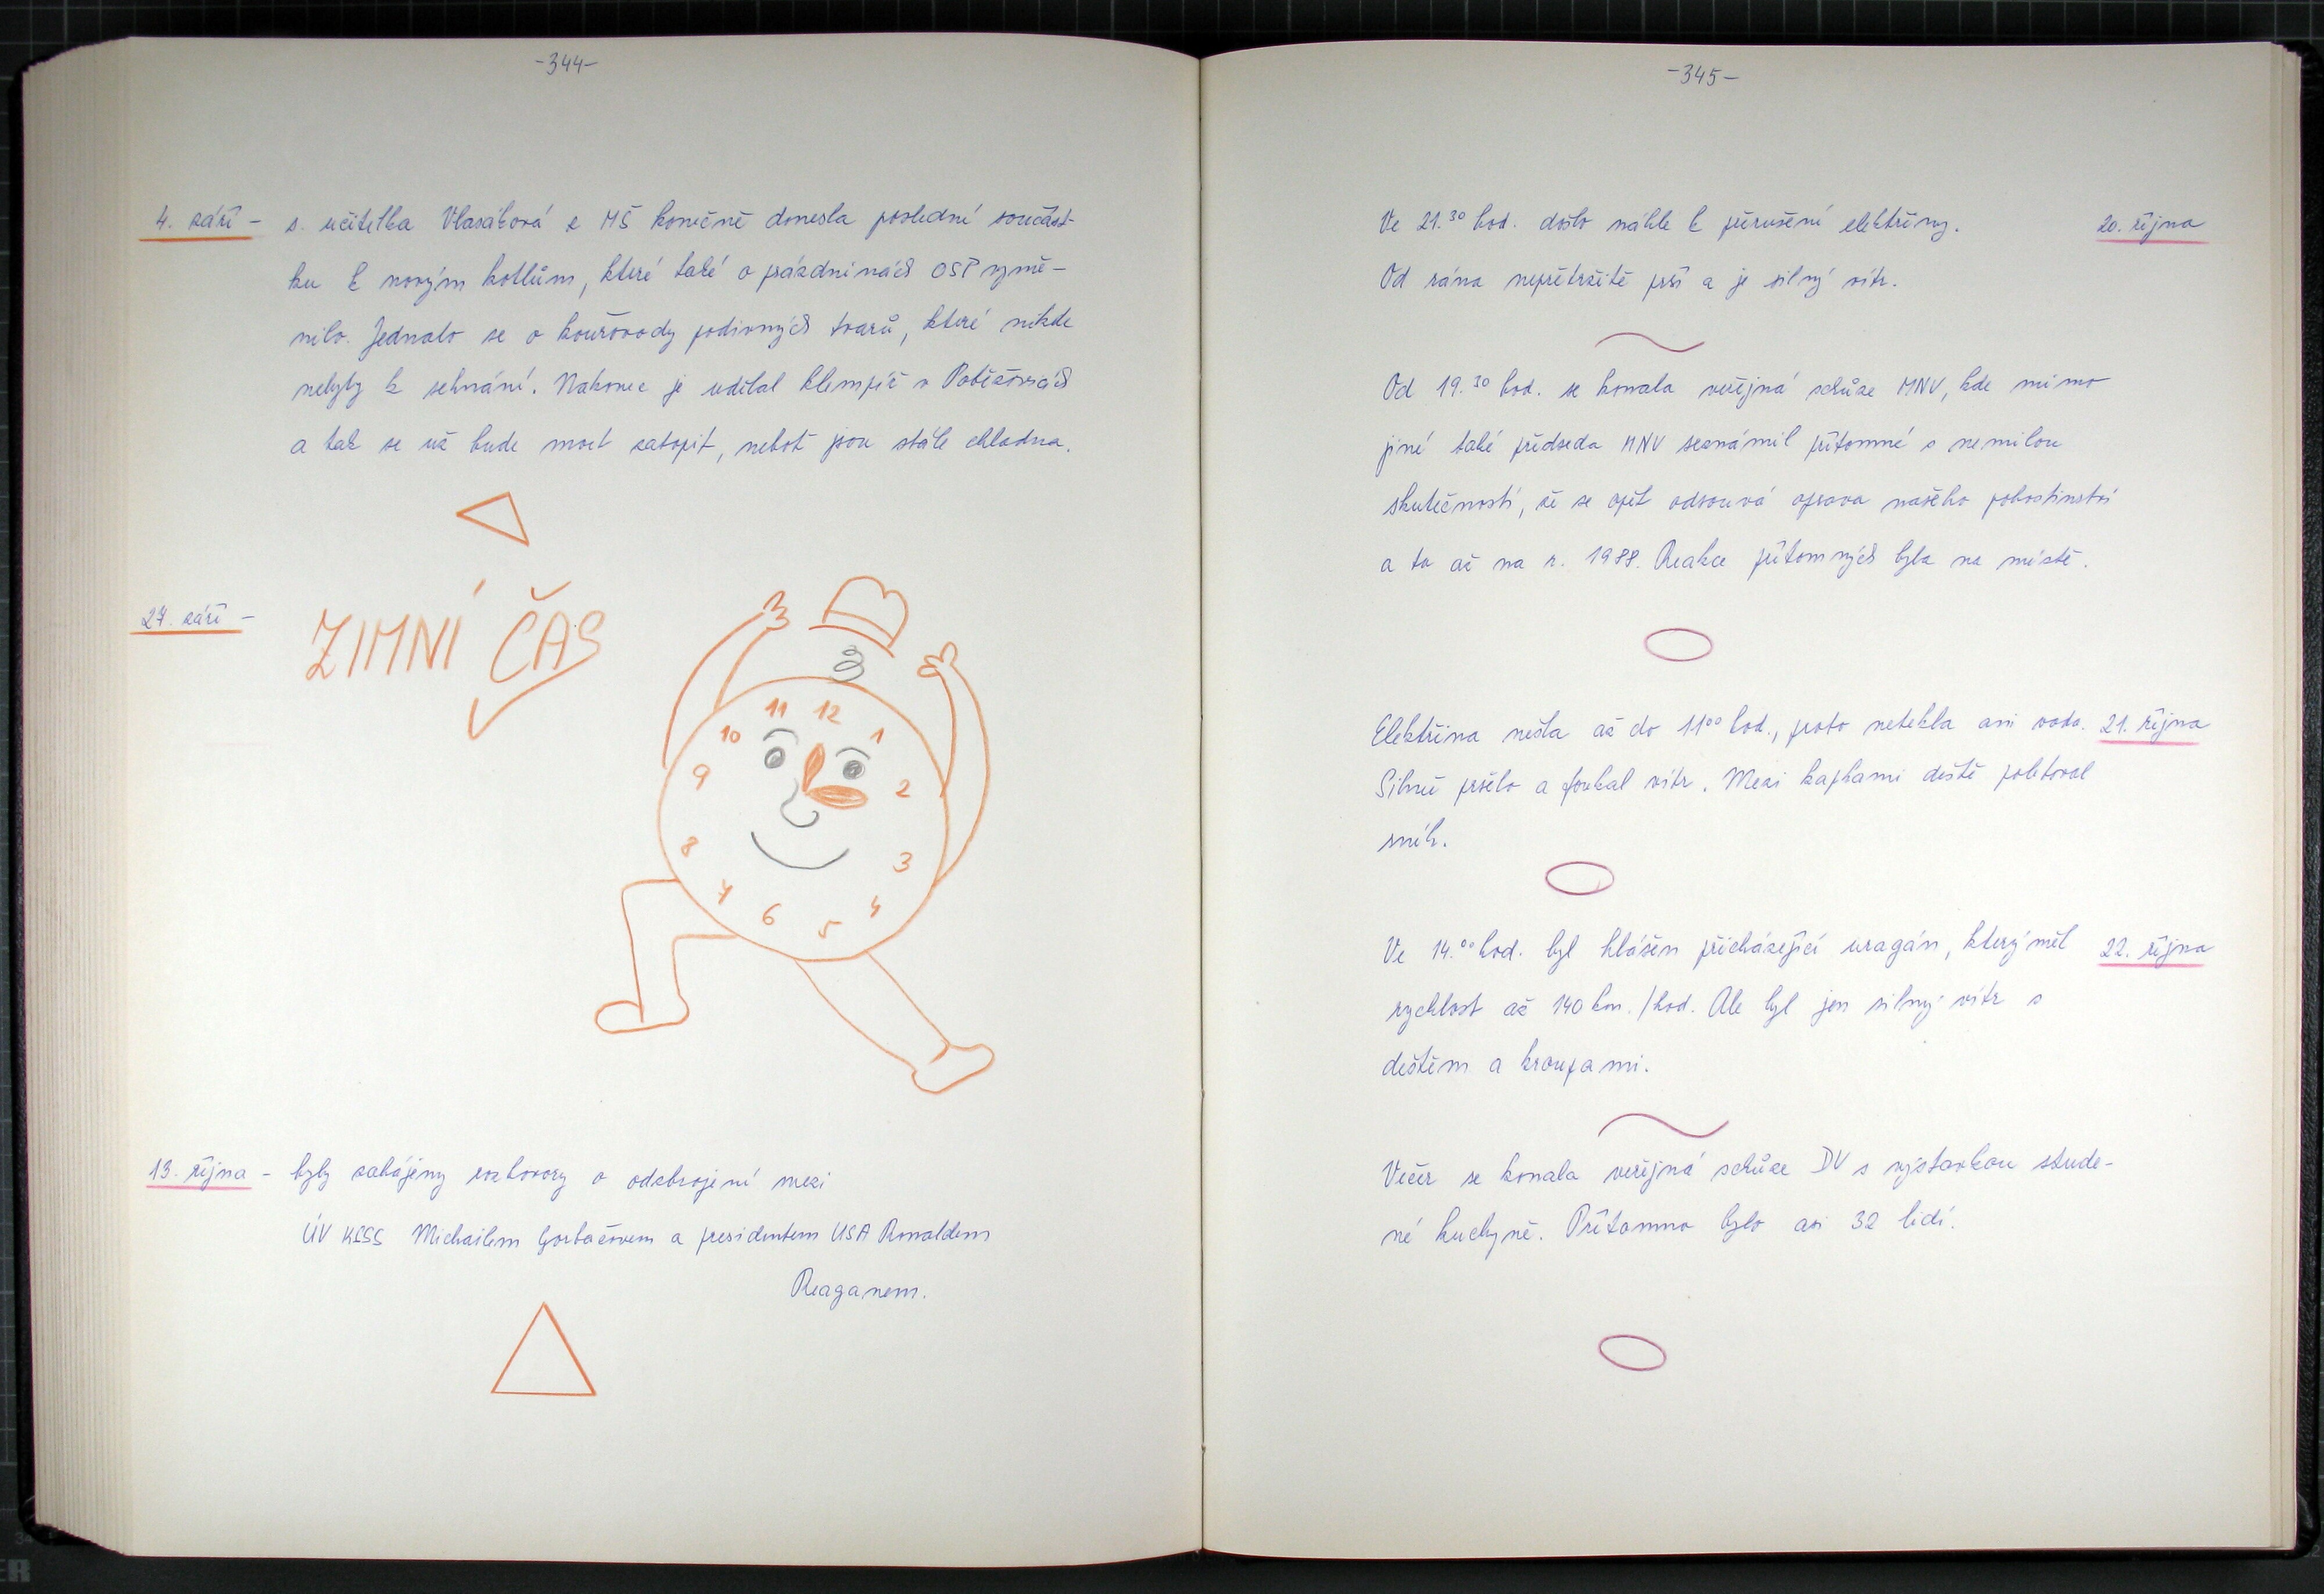 -344-
4. září - s. učitelka Vlasáková z MŠ konečně donesla poslední součást-
ku k novým kotlům, které také o prázdninách OSP vymě-
nilo. Jednalo se o kouřovody podivných tvarů, které nikde
nebyly k sehnání. Nakonec je udělal klempíř v Poběžovicích
a tak se už bude moct zatopit, neboť jsou stále chladna.
27. září -
ZIMNÍ ČAS
11 12
10 1
9 2
8 3
7 4
6 5
13. října - byly zahájeny rozhovory o odzbrojení mezi
ÚV KSSS Michailem Gorbačovem a presidentem USA Ronaldem
Reaganem.
-345-
Ve 21.30 hod. došlo náhle k přerušení elektřiny. 20. října
Od rána nepřetržitě prší a je silný vítr.
Od 19.30 hod. se konala veřejná schůze MNV, kde mimo
jiné také předseda MNV seznámil přítomné s nemilou
skutečností, že se opět odsouvá oprava našeho pohostinství
a to až na r. 1988. Reakce přítomných byla na místě.
Elektřina nešla až do 11 00 hod., proto netekla ani voda. 21. října
Silně pršelo a foukal vítr. Mezi kapkami deště poletoval
sníh.
Ve 14.00 hod. byl hlášen přicházející uragán, který měl 22. října
rychlost až 140 km./hod. Ale byl jen silný vítr s
deštěm a kroupami.
Večer se konala veřejná schůze DV s výstavkou stude-
né kuchyně. Přítomno bylo asi 32 lidí.